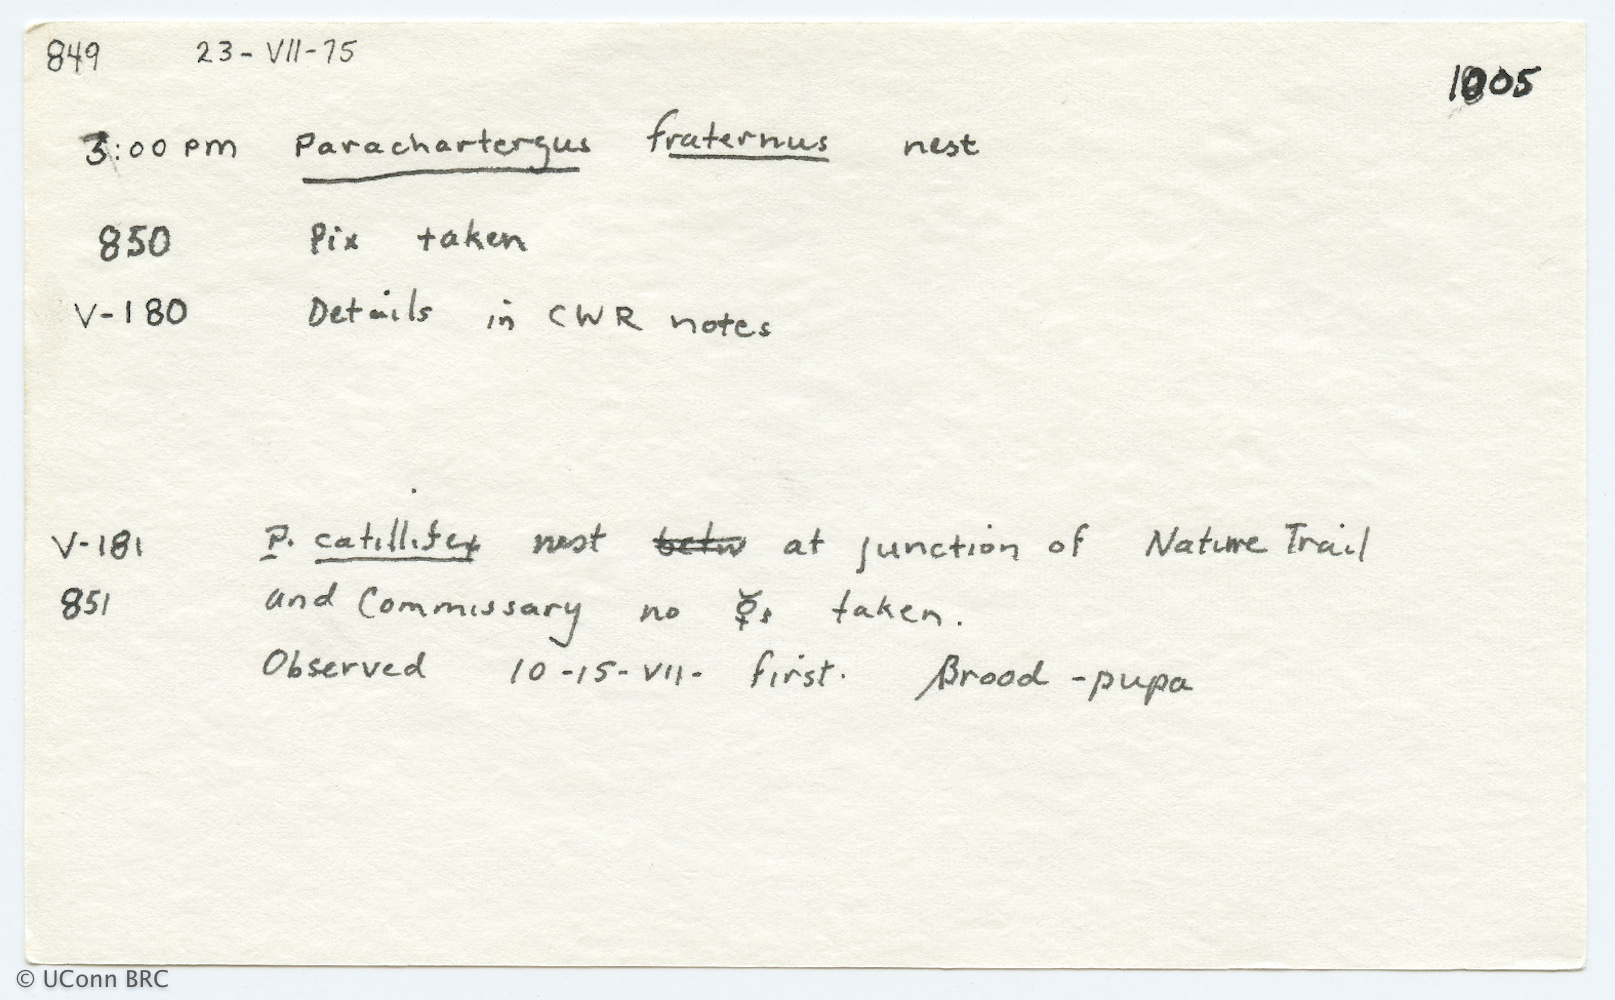 849 23-VII-75 1005
3:00 pm Parachartergus fraternus nest
850 Pix taken
V-180 Details in CWR notes
V-181 P. catillifex nest betw at junction of Nature Trail
851 and Commissary no ☿s taken.
Observed 10-15-VII- first. Brood -pupa
© UConn BRC